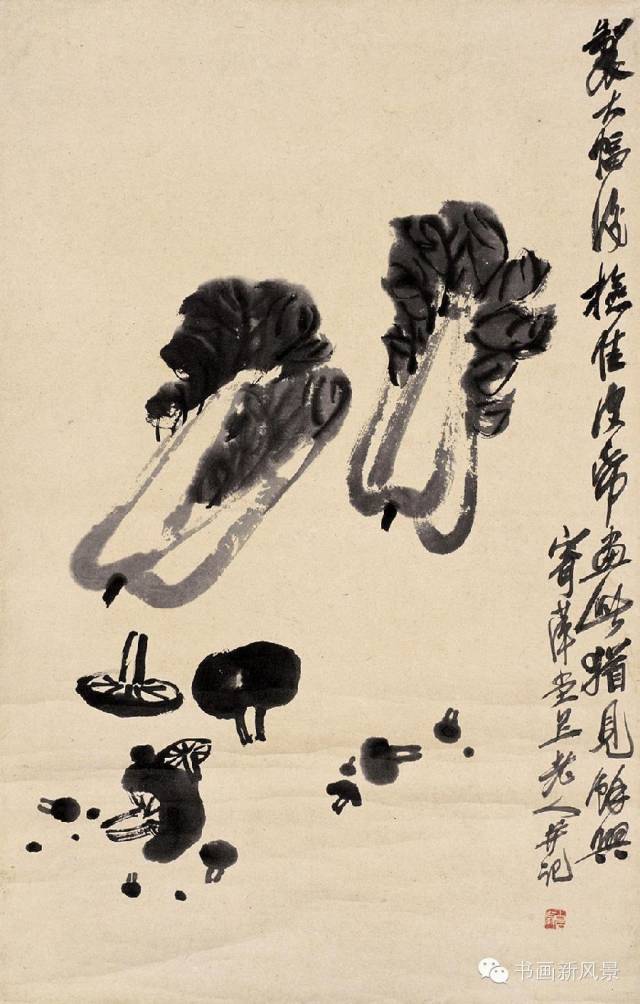 製大幅後撿佳皮帋畫此猶見餘興
寄萍堂上老人并記
书画新风景